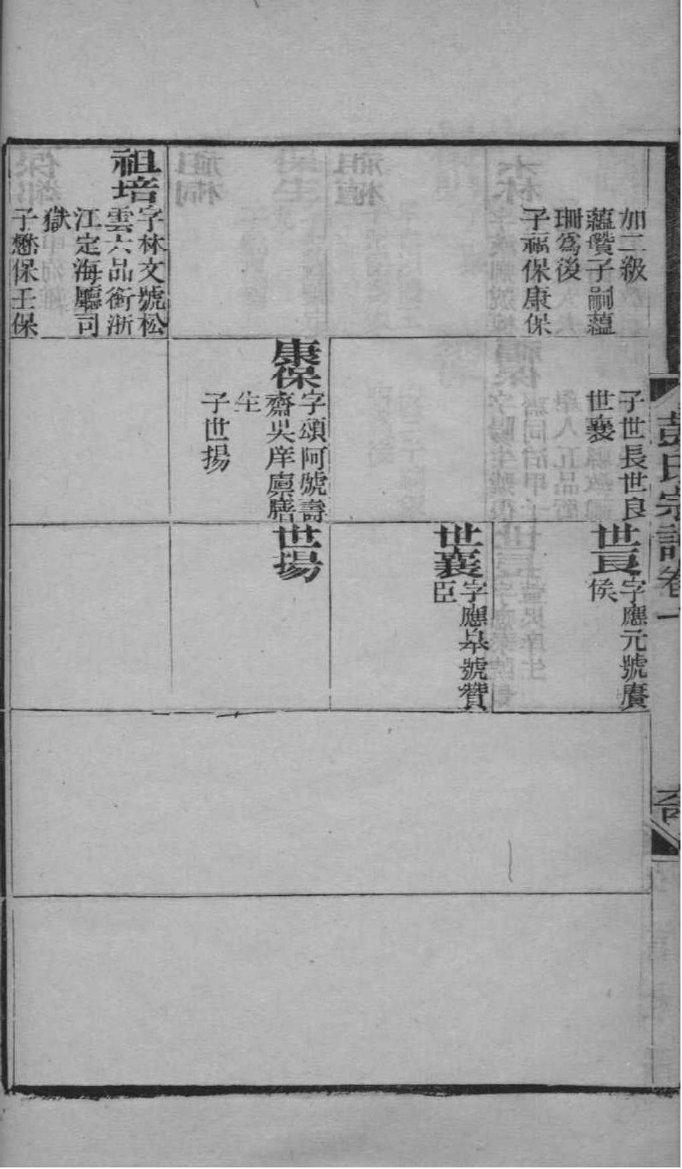 加二級
蘊瓚子嗣蘊
珊爲後
子福保康保
祖培
字林文號松
雲六品銜浙
江定海廳司
獄
子懋保壬保
子世長世良
世襄
康保
字頌阿號壽
齋吳庠廩膳
生
子世揚
世良
字應元號賡
侯
世襄
字應皋號贊
臣
世揚
彭氏宗譜卷一